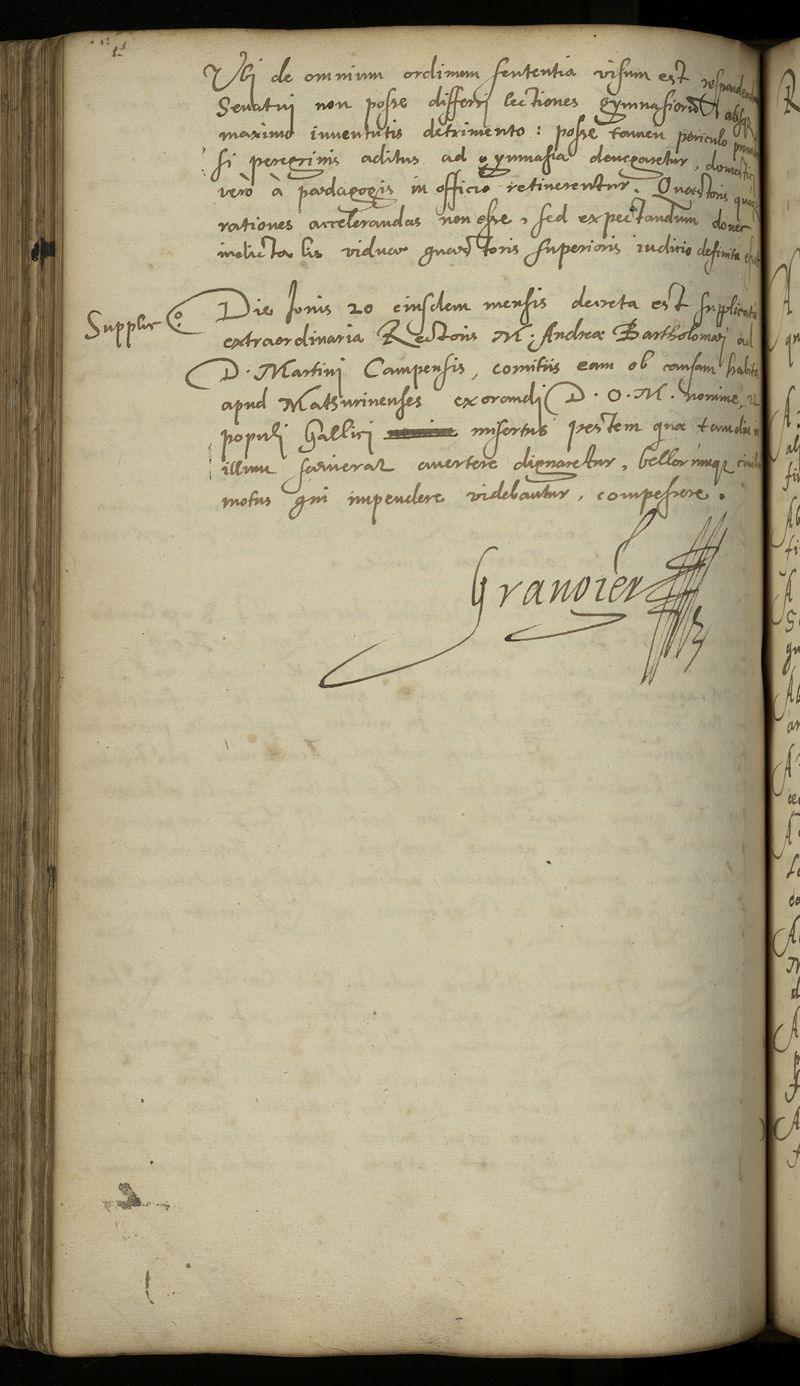 Ubi de omnium ordinum sententia visum est respondendum
Senatui non posse differri lectiones gymnasiorum absque
maximo iuventutis detrimento : posse tamen periculo
si peregrinis aditus ad gymnasia denegaretur, domestici
verò à pædagogis in officio retinerentur. Quæstoris
rationes accelerandas non esse, sed expectandum donec
indicta lis viduæ quæstoris superioris iuditio definita esset
Supplic°
Die Jovis 20 eiusdem mensis decreta est supplicatio
extraordinaria Rectoris M. Andreæ Bartholomæi ad
D. Martini Campensis, comitiis eam ob causam habitis
apud Mathurinenses exorandi D. O. M. nomine, ut
populi Gallici misertus pestem quæ tamdiu in
illum sævierat avertere dignaretur, bellorumque civilium
motus qui impendere videbantur, compescere.
Granoier